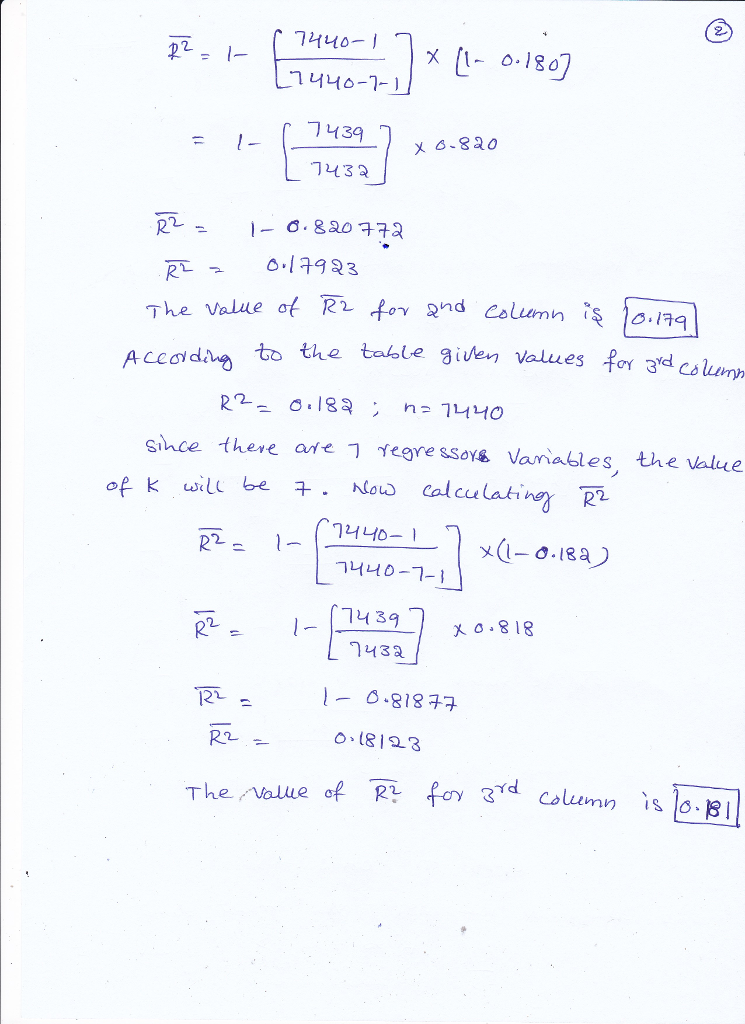 2
R̅2 = 1- [ 7440-1 / 7440-7-1 ] × [1- 0.180]
= 1- [ 7439 / 7432 ] × 0.820
R̅2 = 1- 0.820772
R̅2 = 0.17923
The value of R̅2 for 2nd column is 0.179
According to the table given values for 3rd column
R2 = 0.182 ; n= 7440
since there are 7 regressors variables, the value
of K will be 7. Now calculating R̅2
R̅2 = 1- [ 7440-1 / 7440-7-1 ] ×(1-0.182)
R̅2 = 1- [ 7439 / 7432 ] × 0.818
R̅2 = 1- 0.81877
R̅2 = 0.18123
The value of R̅2 for 3rd column is 0.181